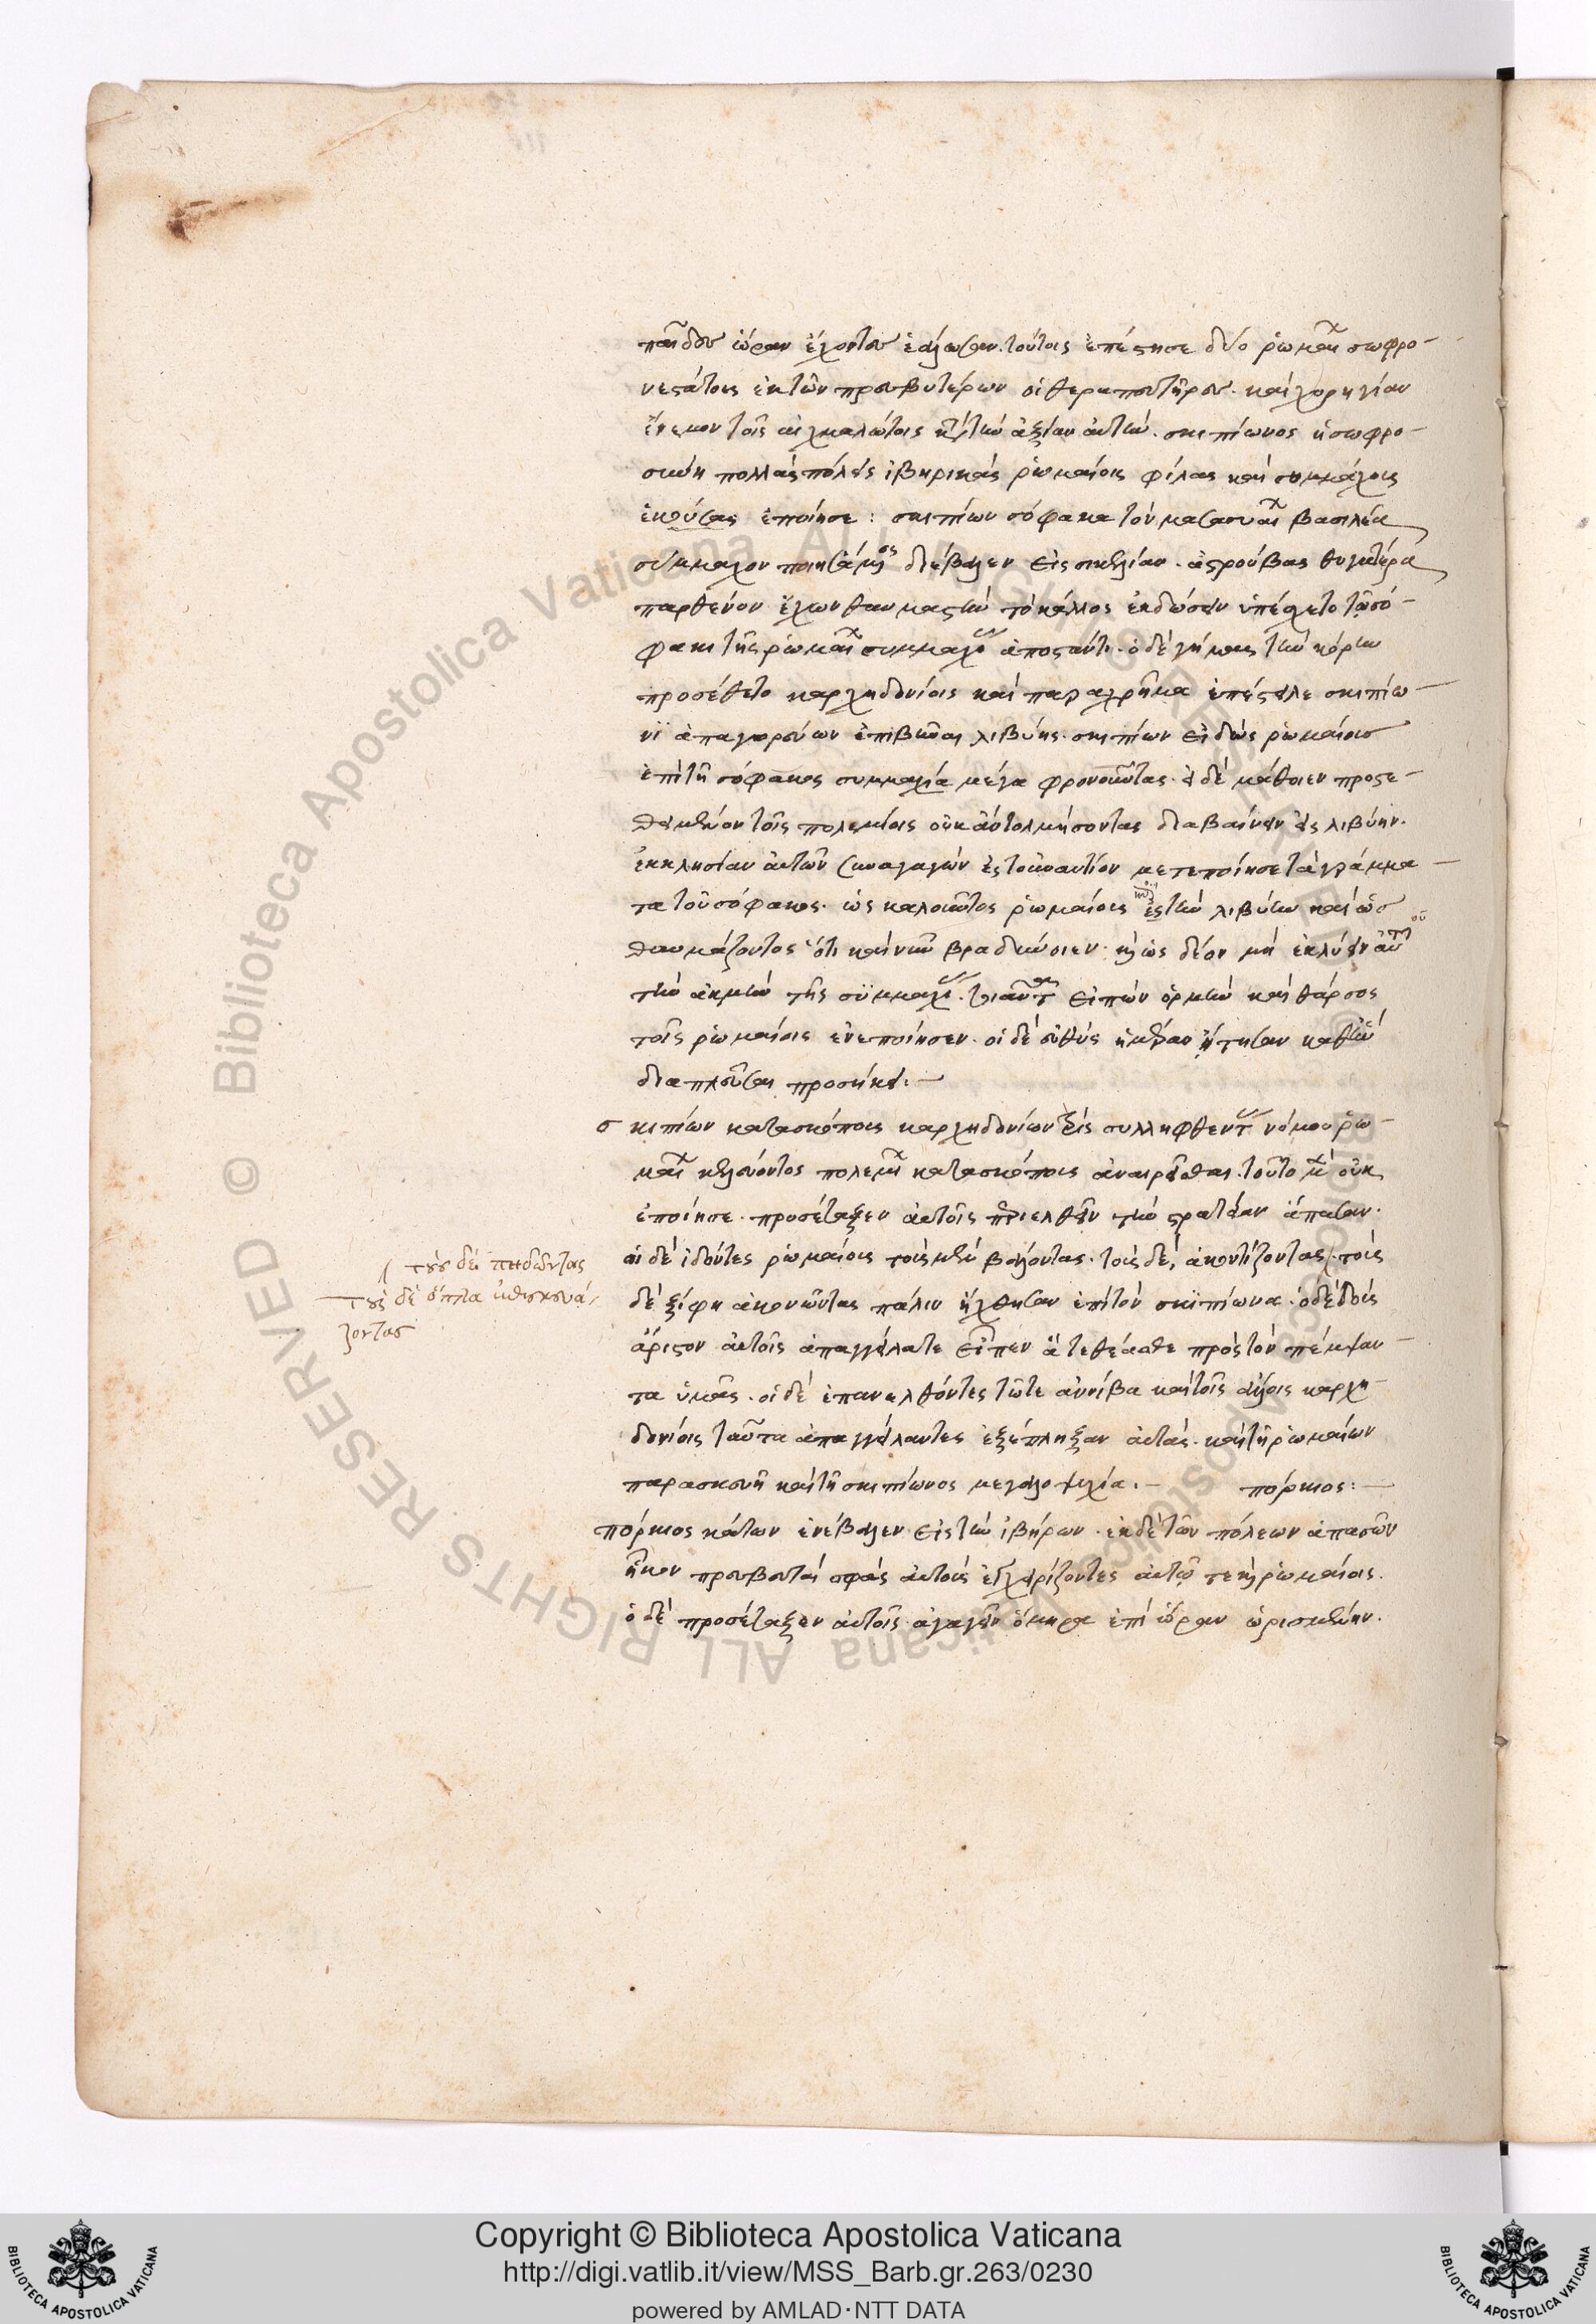 παῖδες ὥραν ἔχοντες ἑάλωσαν. τούτοις ἐπέστησε δύο ῥωμαί σωφρο-
νεστάτους ἐκ τῶν πρεσβυτέρων οἱ θεραπευτῆρες. καὶ χορηγίαν
ἔνεμον τοῖς αἰχμαλώτοις κατὰ τὴν ἀξίαν αὐτῶν. σκιπίωνος ἡ σωφρο-
σύνη πολλὰς πόλεις ἰβηρικὰς ῥωμαίοις φίλας καὶ συμμάχους
ἑκούσας ἐποίησε: σκιπίων σόφακα τὸν μασαισυλί βασιλέα
σύμμαχον ποιησάμενος διέβαλεν εἰς σικελίαν. ἀσρούβας θυγατέρα
παρθένον ἔχων θαυμαστὴν τὸ κάλλος ἐκδώσειν ὑπέσχετο τῷ σό-
φακι τῆς ῥωμαί συμμαχί ἀποστάντι. ὁ δὲ γήμας τὴν κόρην
προσέθετο καρχηδονίοις καὶ παραχρῆμα ἐπέστειλε σκιπίω-
νϊ ἀπαγορεύων ἐπιβῆναι λιβύης. σκιπίων εἰδὼς ῥωμαίους
ἐπὶ τῇ σόφακος συμμαχία μέγα φρονοῦντας. εἰ δὲ μάθοιεν προσε-
θέμενον τοῖς πολεμίοις οὐκ ἂν τολμήσοντας διαβαίνειν εἰς λιβύην.
ἐκκλησίαν αὐτῶν συναγαγὼν ἐς τοὐναντίον μετεποίησε τὰ γράμμα-
τα τοῦ σόφακος. ὡς καλοῦντος ῥωμαίους ἐς τὴν λιβύην καὶ ὡς
θαυμάζοντος ὅτι καὶ νῦν βραδύνοιεν. καὶ ὡς δέον μὴ ἐκλύειν αὐτοῦ
τὴν ἀκμὴν τῆς συμμαχί. τοιαῦτα εἰπὼν ὁρμὴν καὶ θάρσος
τοῖς ῥωμαίοις ἐνεποίησεν. οἱ δὲ εὐθὺς ἡμέραν ᾔτησαν καθ' ἣν
διαπλεῦσαι προσήκει:-
σκιπίων κατασκόπους καρχηδονίων τρεῖς συλληφθέντ νόμου ῥω-
μαί κελεύοντος πολεμί κατασκόπους ἀναιρεῖσθαι. τοῦτο μὲν οὐκ
ἐποίησε. προσέταξεν αὐτοῖς περιελθεῖν τὴν στρατείαν ἅπασαν.
οἱ δὲ ἰδόντες ῥωμαίους τοὺς μὲν βάλλοντας. τοὺς δὲ, ἀκοντίζοντας. τοὺς
τοὺς δὲ πηδῶντας
τοὺς δὲ ὅπλα κατασκευά-
ζοντας
δὲ ξίφη ἀκονῶντας πάλιν ἤχθησαν ἐπὶ τὸν σκιπίωνα. ὁ δὲ δοὺς
ἄριστον αὐτοῖς ἀπαγγείλατε εἶπεν ἃ τεθέασθε πρὸς τὸν πέμψαν-
τα ὑμᾶς. οἱ δὲ ἐπανελθόντες τῷτε ἀννίβα καὶ τοῖς ἄλλοις καρχη-
δονίοις ταῦτα ἀπαγγείλαντες ἐξέπληξαν αὐτοὺς. καὶ τῇ ῥωμαίων
παρασκευῆ καὶ τῇ σκιπίωνος μεγαλοψυχία.- πόρκιος:-
πόρκιος κάτων ἐνέβαλεν εἰς τὴν ἰβήρων. ἐκ δὲ τῶν πόλεων ἁπασῶν
ἧκον πρεσβευταὶ σφᾶς αὐτοὺς ἐγχειρίζοντες αὐτῷ τε καὶ ῥωμαίοις.
ὁ δὲ προσέταξεν αὐτοῖς ἀγαγεῖν ὅμηρα ἐπὶ ὥραν ὡρισμένην.
Copyright © Biblioteca Apostolica Vaticana
http://digi.vatlib.it/view/MSS_Barb.gr.263/0230
powered by AMLAD·NTT DATA